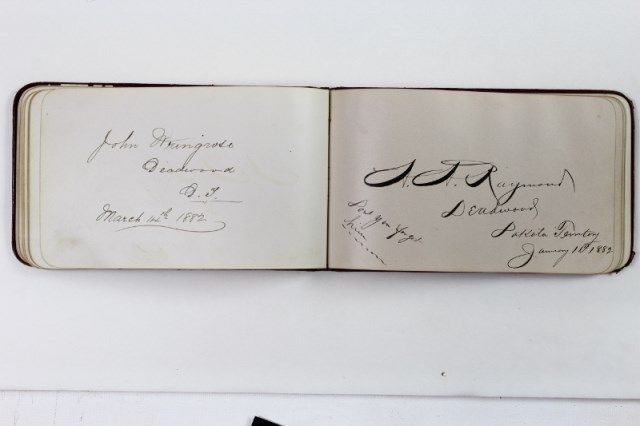 John Wringrose
Deadwood
D.T.
March 14th 1882
A. A. Raymond
Deadwood
Dakota Territory
January 10th 1882